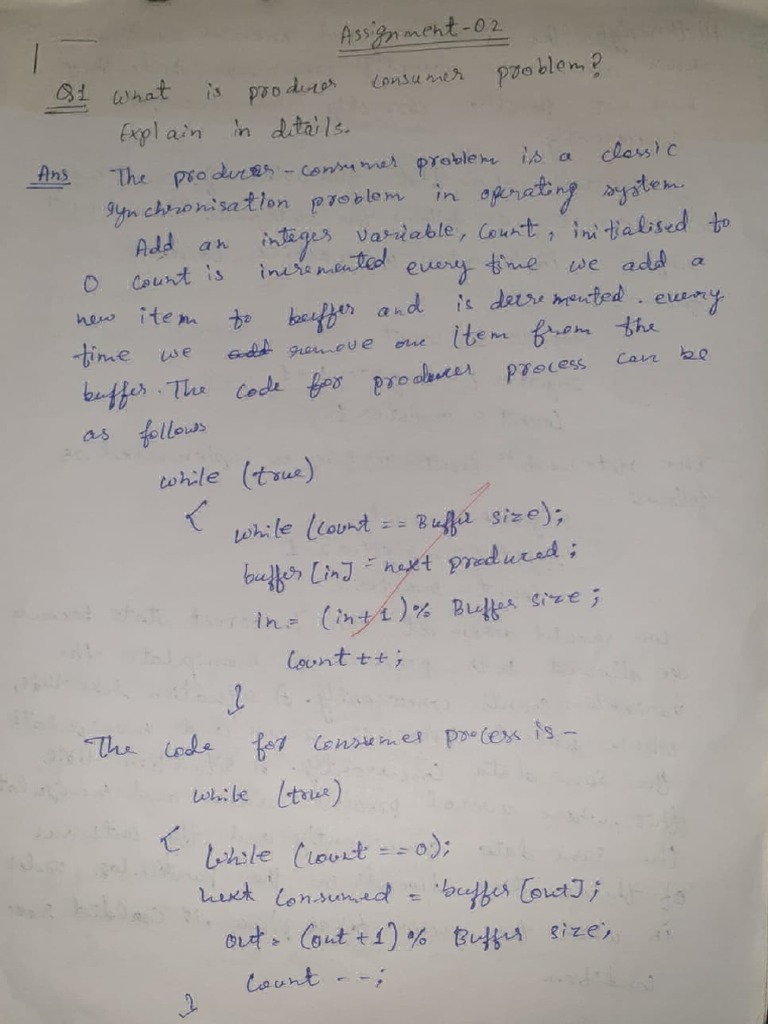 Assignment-02
Q1 What is producer consumer problem?
Explain in details.
Ans The producer-consumer problem is a classic
synchronisation problem in operating system.
Add an integer variable, count, initialised to
0 count is incremented every time we add a
new item to buffer and is decremented. every
time we add remove one item from the
buffer. The code for producer process can be
as follows
while (true)
{
while (count == Buffer size);
buffer [in] = next produced;
in = (in+1) % Buffer size;
Count ++;
}
The code for consumer process is -
while (true)
{
while (count == 0);
next consumed = buffer [out];
out = (out +1) % Buffer size;
Count --;
}